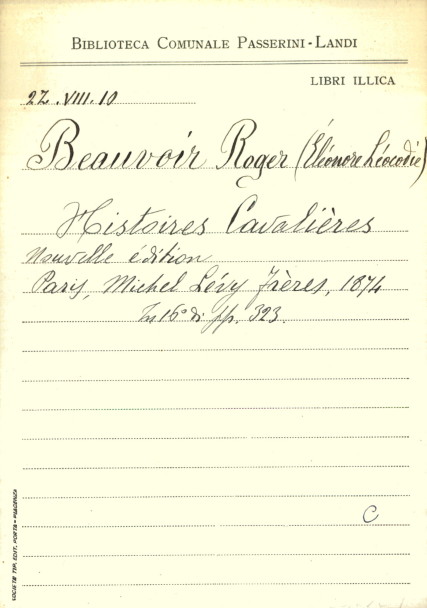 BIBLIOTECA COMUNALE PASSERINI-LANDI
LIBRI ILLICA
22.VIII.10
Beauvoir Roger (Éléonore Léocadie)
Histoires Cavalières
Nouvelle édition
Paris, Michel Lévy Frères, 1874
In 16° di pp. 323.
C
SOCIETÀ TIP. EDIT. PORTA - PIACENZA